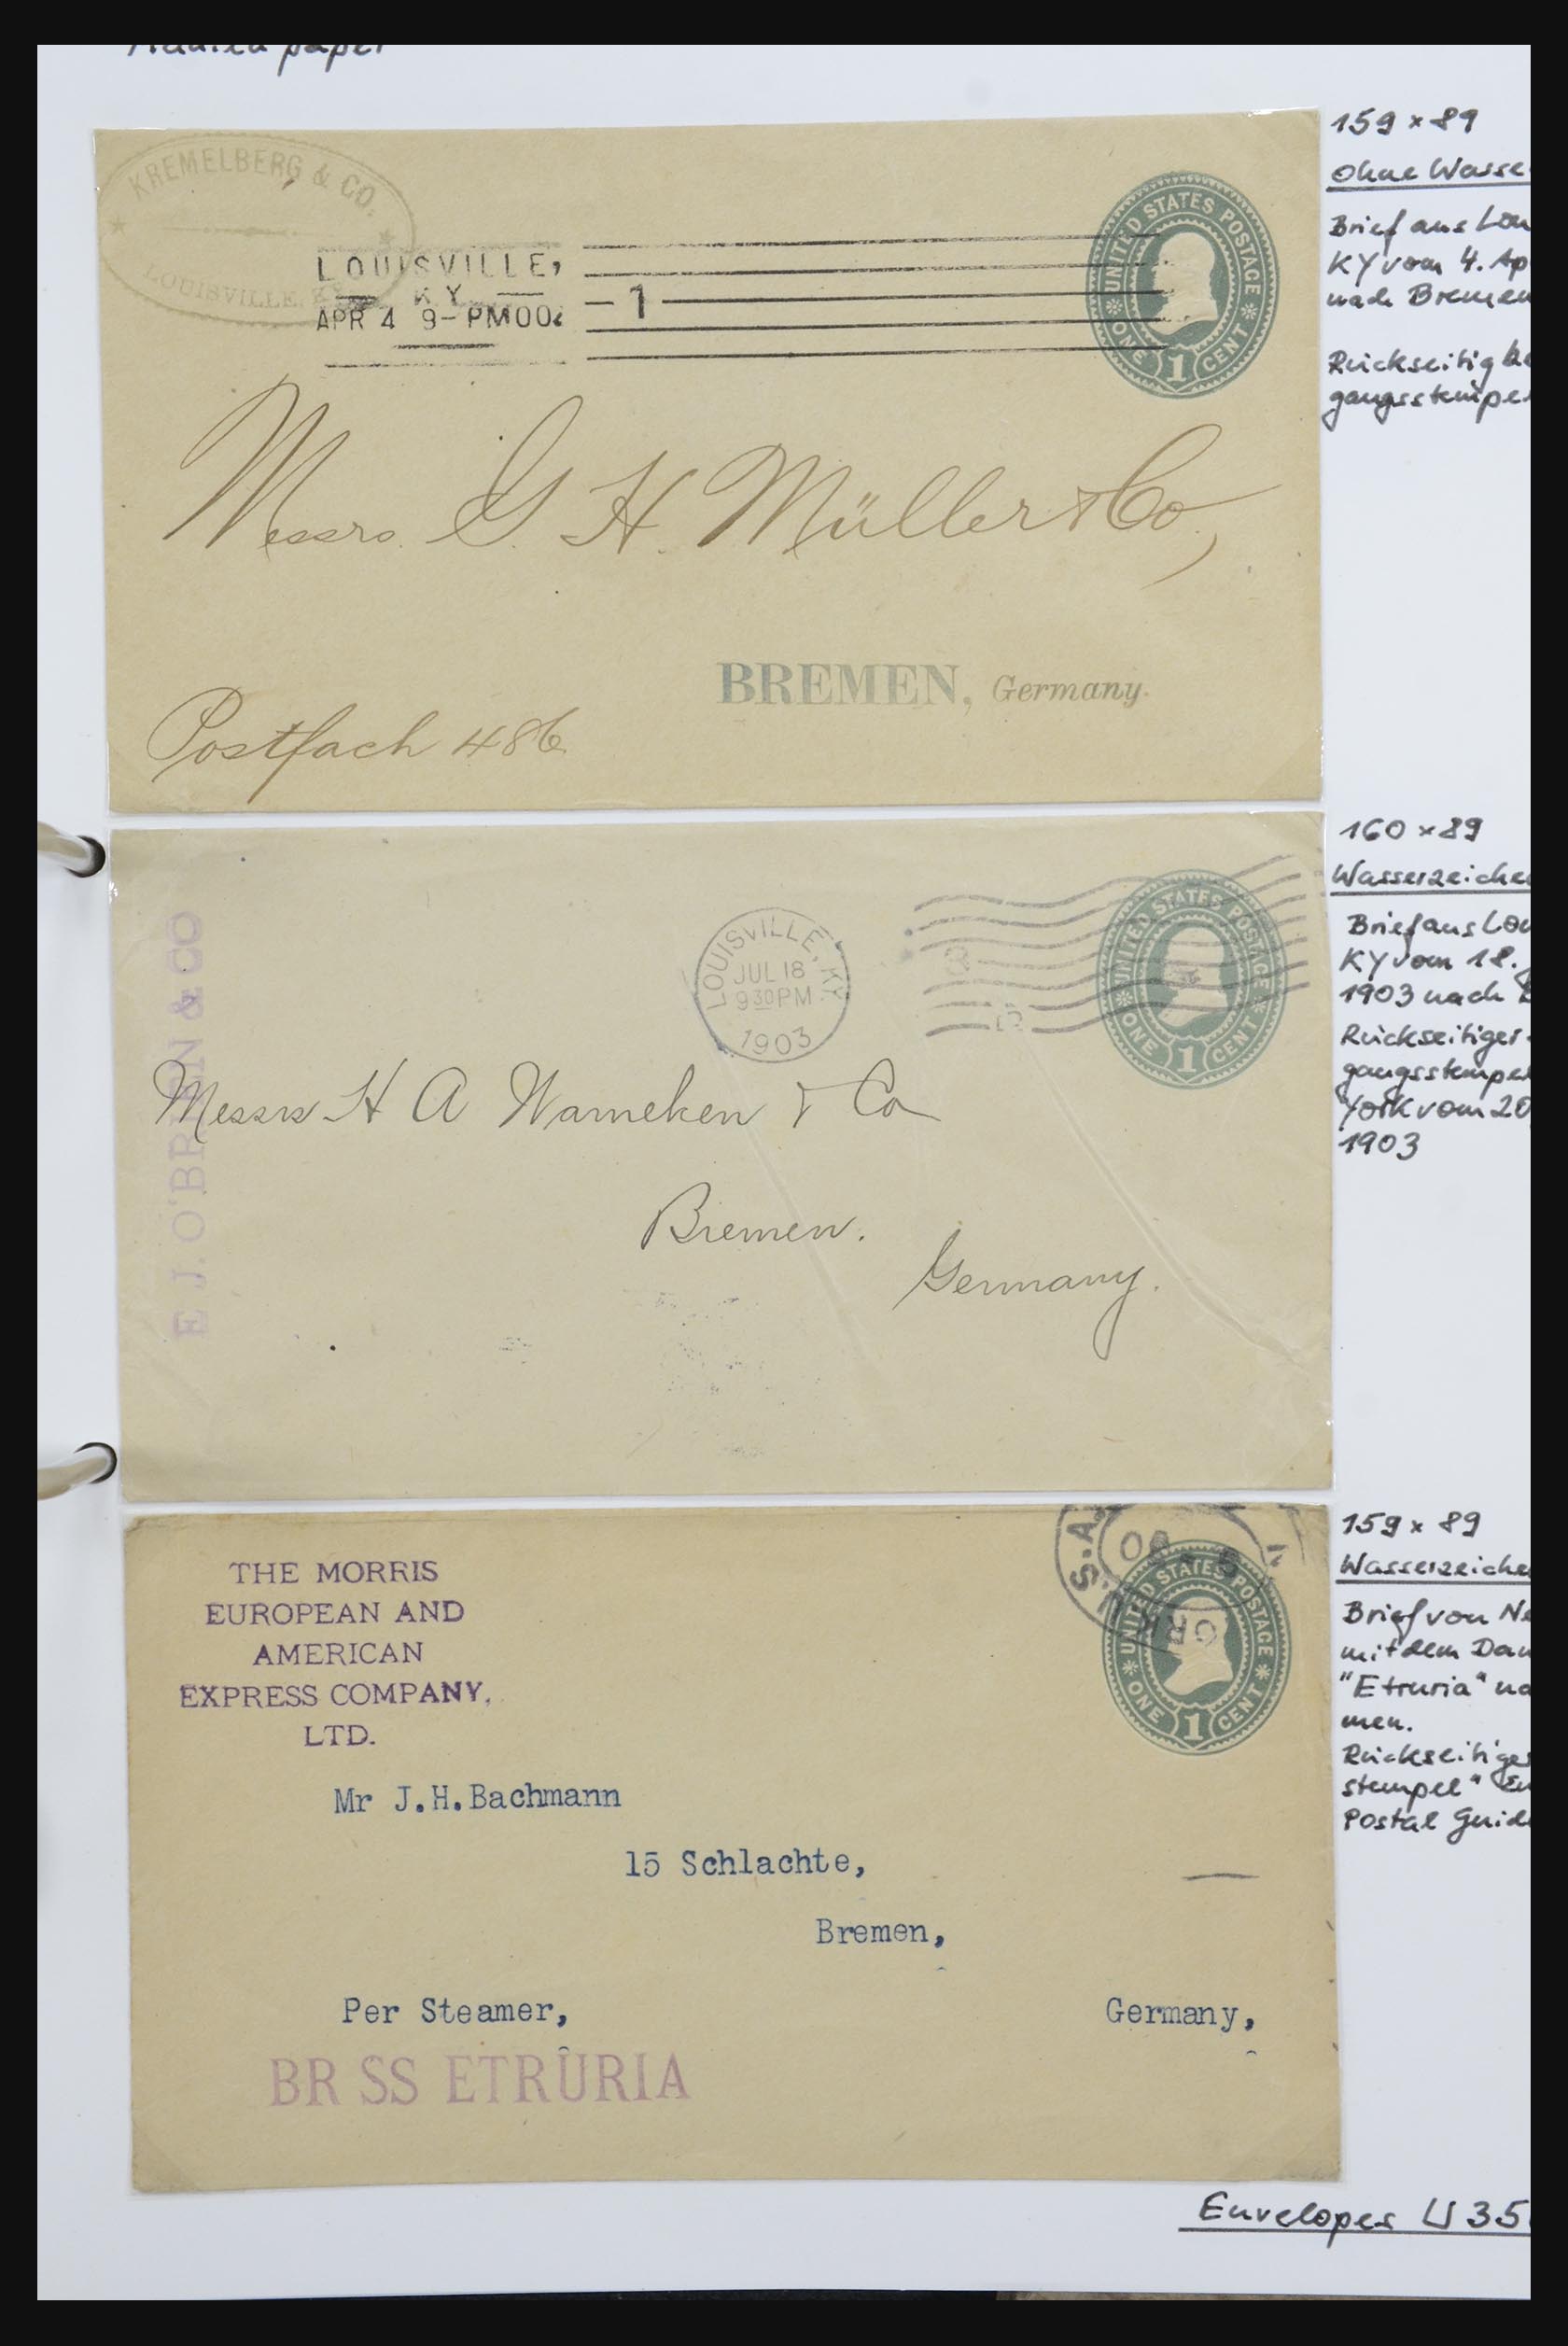 paper
KREMELBERG & CO.
LOUISVILLE, KY
LOUISVILLE,
KY
APR 4 9-PM00
1
UNITED STATES POSTAGE
ONE 1 CENT
Messrs. G. H. Müller & Co,
BREMEN, Germany.
Postfach 486
159 x 89
ohne Wasse
Brief aus Lou
KY vom 4. Ap
nach Bremen
Rückseitig
gangsstempe
E J. O'BRIEN & CO
LOUISVILLE, KY.
JUL 18
930PM
1903
UNITED STATES POSTAGE
ONE 1 CENT
Messrs H A Warneken & Co
Bremen.
Germany.
160 x 89
Wasserzeiche
Brief aus Lou
KY vom 18.
1903 nach
Rückseitiger
gangsstempe
York vom 20
1903
THE MORRIS
EUROPEAN AND
AMERICAN
EXPRESS COMPANY,
LTD.
ORK U.S.A.
UNITED STATES POSTAGE
ONE 1 CENT
Mr J.H.Bachmann
15 Schlachte,
Bremen,
Per Steamer,
Germany,
BR SS ETRURIA
159 x 89
Wasserzeiche
Brief von Ne
mit dem Dam
"Etruria" na
men.
Rückseitige
stempel "Eu
Postal Guid
Envelopes U35